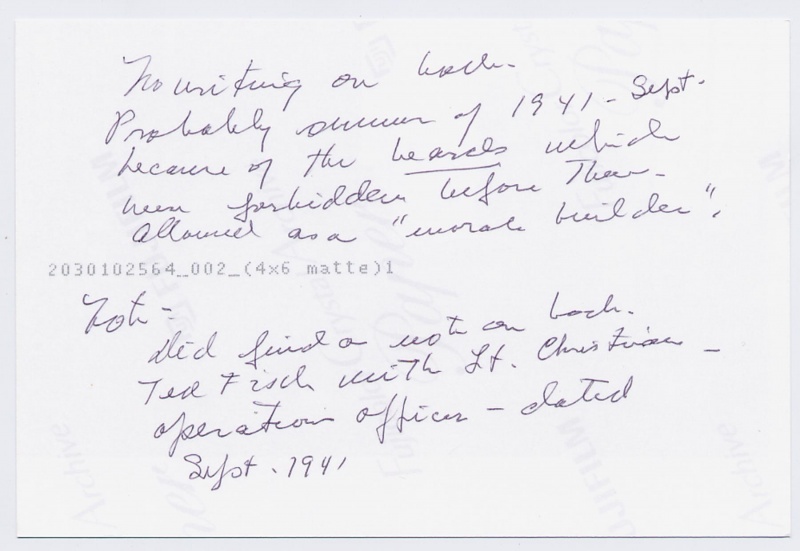 No writing on back.
Probably summer of 1941 - Sept.
because of the beards which
were forbidden before then -
allowed as a "morale builder".
2030102564_002_(4x6 matte)1
Note -
Did find a note on back.
Ted Fisch with Lt. Christian -
operations officer - dated
Sept. 1941